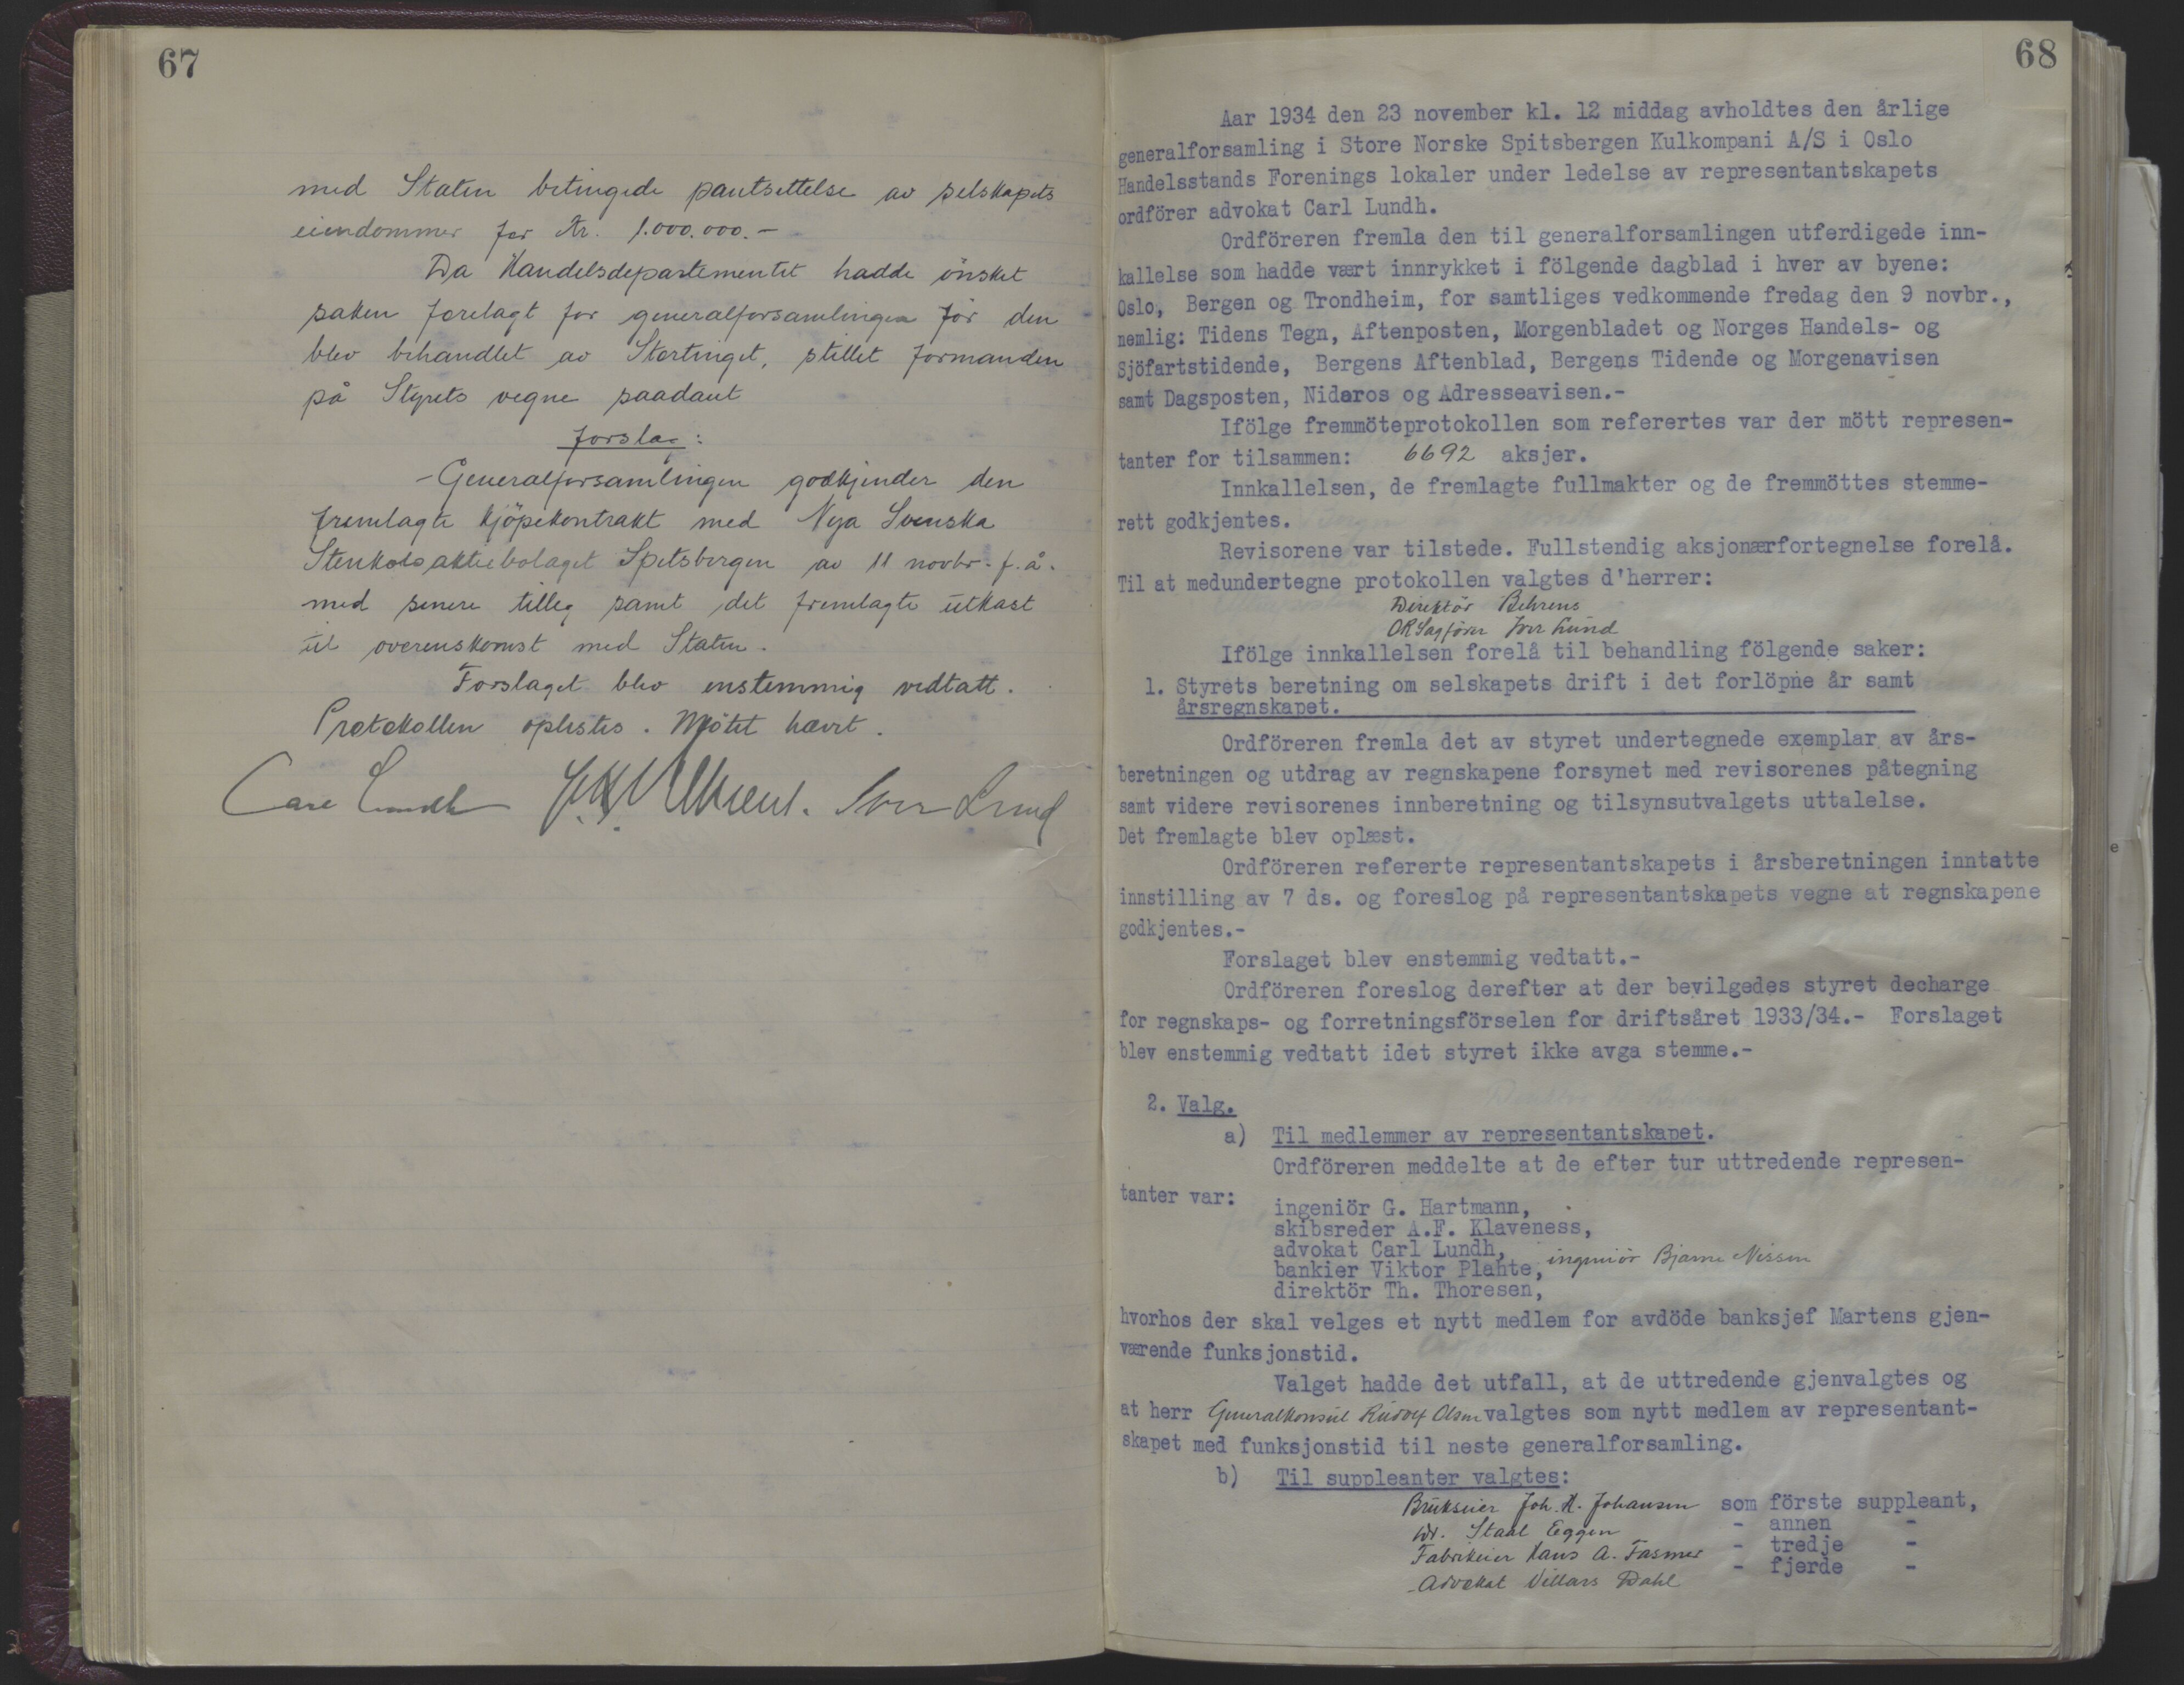 67
med Staten betingede pantsettelse av selskapets
eiendommer for Kr. 1.000.000.-
Da Handelsdepartementet hadde önsket
saken forelagt for generalforsamlingen för den
blev behandlet av Stortinget, stillet formanden
på Styrets vegne saadant
forslag:
Generalforsamlingen godkjender den
fremlagte kjöpekontrakt med Nya Svenska
Stenkolsaktiebolaget Spetsbergen av 11 novbr. f.å.
med senere tilleg samt det fremlagte utkast
til overenskomst med Staten.
Forslaget blev enstemmig vedtatt.
Protokollen oplestes. Mötet hævet.
Carl Lundh Behrens. Iver Lund
68
Aar 1934 den 23 november kl. 12 middag avholdtes den årlige
generalforsamling i Store Norske Spitsbergen Kulkompani A/S i Oslo
Handelsstands Forenings lokaler under ledelse av representantskapets
ordförer advokat Carl Lundh.
Ordföreren fremla den til generalforsamlingen utferdigede inn-
kallelse som hadde vært innrykket i fölgende dagblad i hver av byene:
Oslo, Bergen og Trondheim, for samtliges vedkommende fredag den 9 novbr.,
nemlig: Tidens Tegn, Aftenposten, Morgenbladet og Norges Handels- og
Sjöfartstidende, Bergens Aftenblad, Bergens Tidende og Morgenavisen
samt Dagsposten, Nidaros og Adresseavisen.-
Ifölge fremmöteprotokollen som referertes var der mött represen-
tanter for tilsammen: 6692 aksjer.
Innkallelsen, de fremlagte fullmakter og de fremmöttes stemme-
rett godkjentes.
Revisorene var tilstede. Fullstendig aksjonærfortegnelse forelå.
Til at medundertegne protokollen valgtes d'herrer:
Direktör Behrens
ORSagförer Iver Lund
Ifölge innkallelsen forelå til behandling fölgende saker:
1. Styrets beretning om selskapets drift i det forlöpne år samt
årsregnskapet.
Ordföreren fremla det av styret undertegnede exemplar av års-
beretningen og utdrag av regnskapene forsynet med revisorenes påtegning
samt videre revisorenes innberetning og tilsynsutvalgets uttalelse.
Det fremlagte blev oplæst.
Ordföreren refererte representantskapets i årsberetningen inntatte
innstilling av 7 ds. og foreslog på representantskapets vegne at regnskapene
godkjentes.-
Forslaget blev enstemmig vedtatt.-
Ordföreren foreslog derefter at der bevilgedes styret decharge
for regnskaps- og forretningsförselen for driftsåret 1933/34.- Forslaget
blev enstemmig vedtatt idet styret ikke avga stemme.-
2. Valg.
a) Til medlemmer av representantskapet.
Ordföreren meddelte at de efter tur uttredende represen-
tanter var:
ingeniör G. Hartmann,
skibsreder A.F. Klaveness,
advokat Carl Lundh,
bankier Viktor Plahte, ingeniör Bjarne Nissen
direktör Th. Thoresen,
hvorhos der skal velges et nytt medlem for avdöde banksjef Martens gjen-
værende funksjonstid.
Valget hadde det utfall, at de uttredende gjenvalgtes og
at herr Generalkonsul Rudolf Olsen valgtes som nytt medlem av representant-
skapet med funksjonstid til neste generalforsamling.
b) Til suppleanter valgtes:
Brukseier Joh. H. Johansen som förste suppleant,
Dr. Staal Eggen - annen -
Fabrikeier Hans A. Fasmer - tredje -
Advokat Villars Dahl - fjerde -